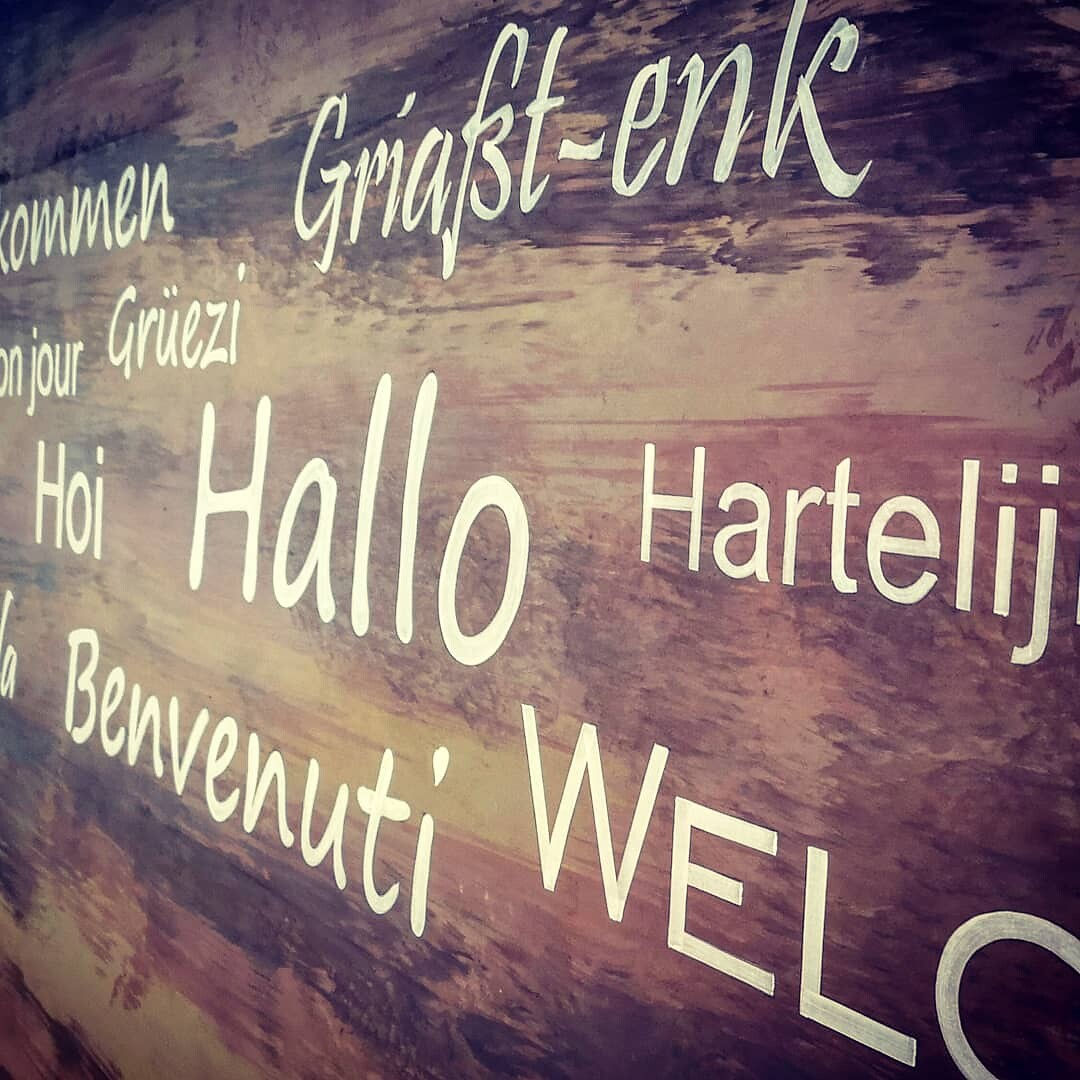 Griaßt-enk
kommen
on jour Grüezi
Hoi Hallo Hartelij
la Benvenuti
WELC